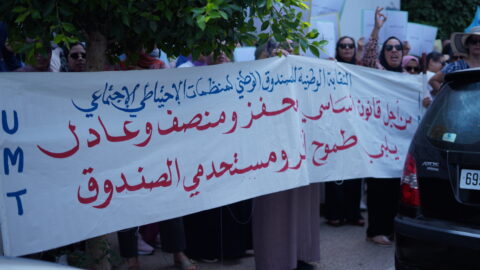 النقابة الوطنية للصندوق الوطني لمنظمات الاحتياطي الإجتماعي
من أجل قانون أساسي محفز ومنصف وعادل
يلبي طموح ومستخدمي الصندوق
UMT
69